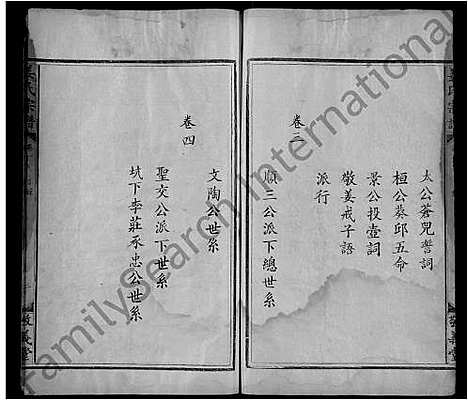 太公蒼兕誓詞
桓公葵邱五命
景公投壺詞
敬姜戒子語
派行
卷三
順三公派下總世系
文陶公世系
卷四
聖交公派下世系
坑下李莊承忠公世系
敬義堂
氏宗譜
FamilySearch International